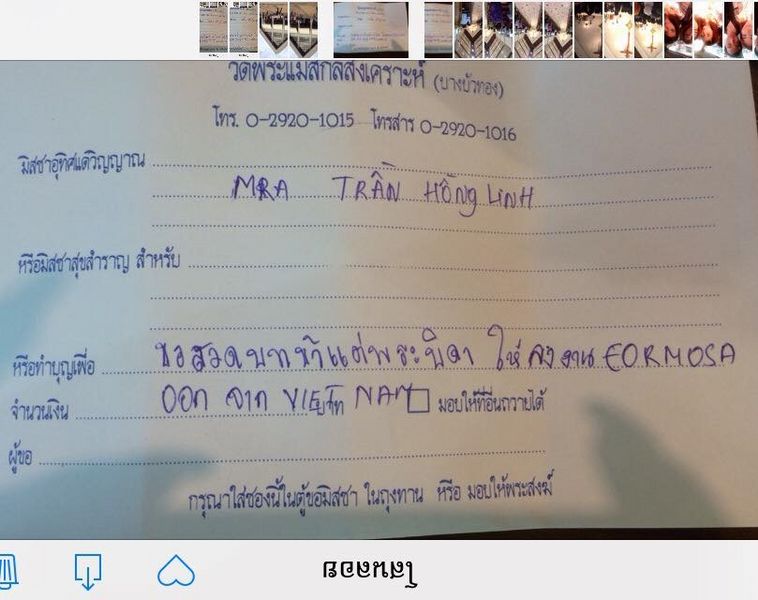 วัดพระแม่สกลสงเคราะห์ (บางบัวทอง)
โทร. 0-2920-1015 โทรสาร 0-2920-1016
มิสซาอุทิศแด่วิญญาณ
MRA TRẦN HỒNG LINH
หรือมิสซาสุขสำราญ สำหรับ
หรือทำบุญเพื่อ ขอสวดบทข้าแต่พระบิดา ให้ โรงงาน FORMOSA
จำนวนเงิน ออก จาก VIET NAM บาท มอบให้ที่อื่นถวายได้
ผู้ขอ
กรุณาใส่ซองนี้ในตู้ขอมิสซา ในถุงทาน หรือ มอบให้พระสงฆ์
โดนถอย